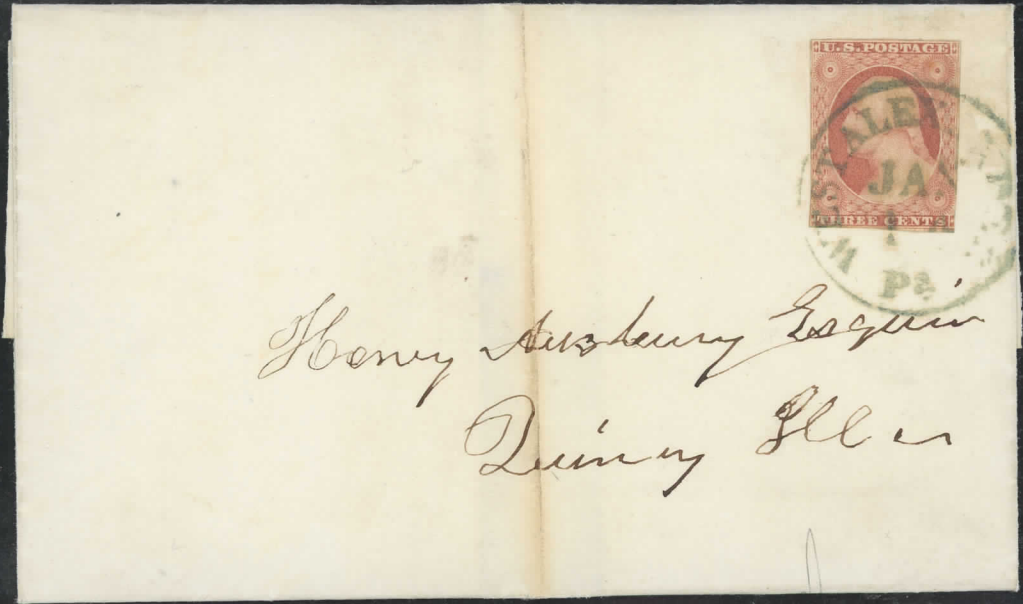 U.S. POSTAGE
THREE CENTS
WEST ALEXANDER
JA
1
Pa
Henry Asbury Esquir
Quincy Ills